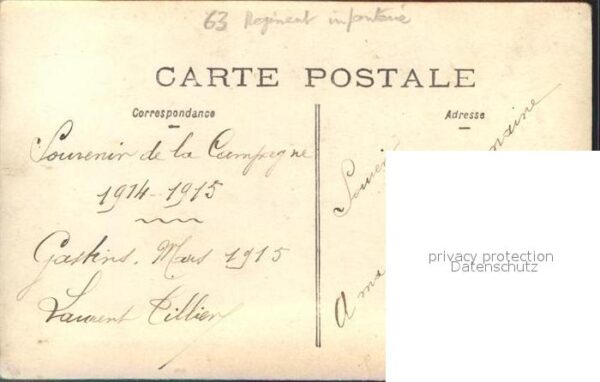 63 Regiment infanterie
CARTE POSTALE
Correspondance
Adresse
Souvenir de la Campagne
1914-1915
Gastins. Mars 1915
Laurent Tillier
Souvenir
A ma
privacy protection
Datenschutz